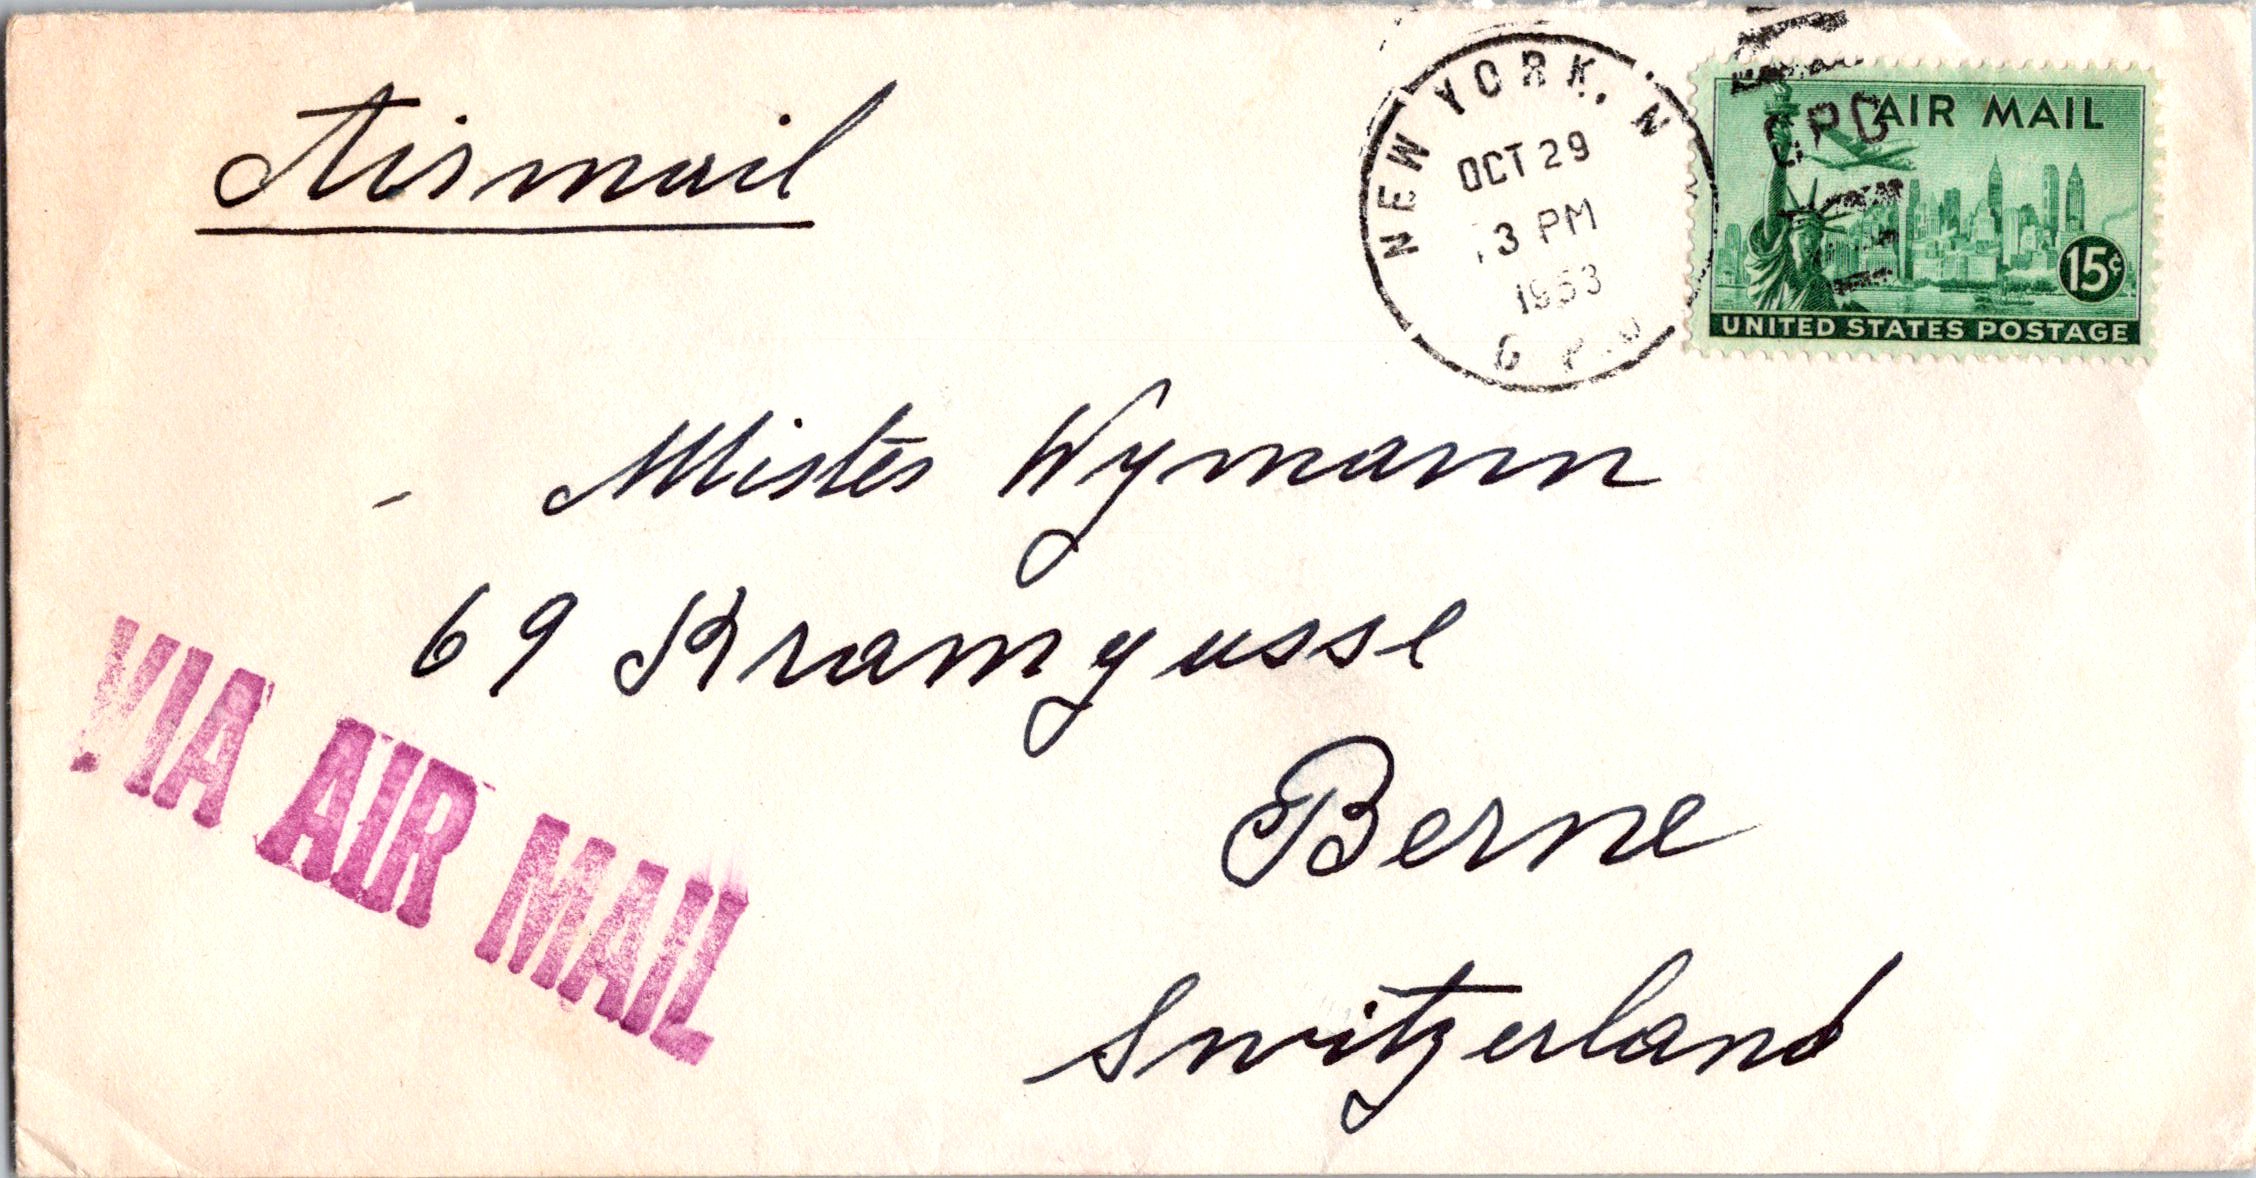 Airmail
NEW YORK, N
OCT 29
3 PM
1953
G.P.O
GPO
AIR MAIL
15¢
UNITED STATES POSTAGE
Mister Wymann
69 Kramgasse
Berne
Switzerland
VIA AIR MAIL